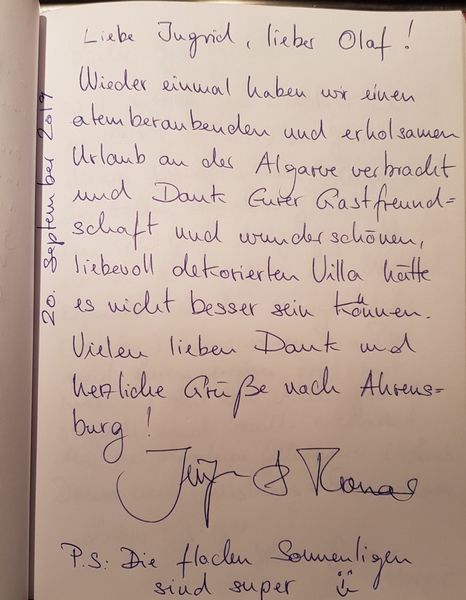 Liebe Ingrid, lieber Olaf!
Wieder einmal haben wir einen
atemberaubenden und erholsamen
Urlaub an der Algarve verbracht
und Dank Eurer Gastfreund=
schaft und wunderschönen,
liebevoll dekorierten Villa hätte
es nicht besser sein können.
Vielen lieben Dank und
herzliche Grüße nach Ahrens=
burg!
&
P.S: Die flachen Sonnenliegen
sind super ü
20. September 2019